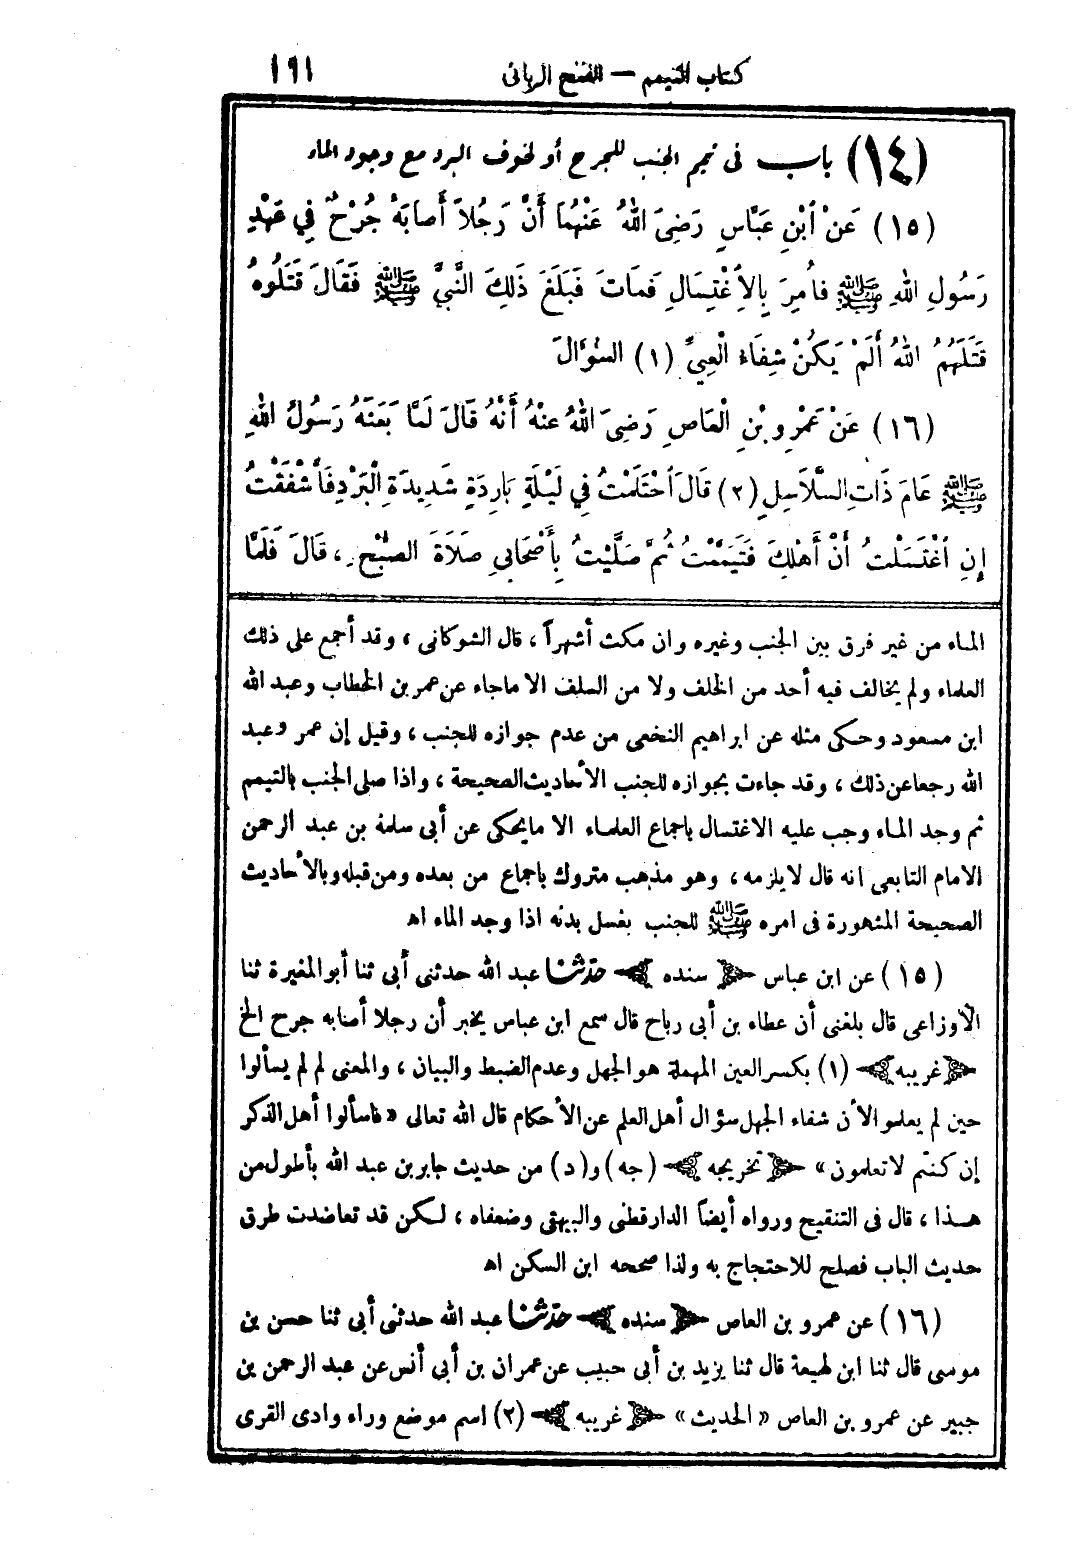 كتاب التيمم — الفتح الربانى ١٩١
(١٤) باب فى تيمم الجنب للجرح أو لخوف البرد مع وجود الماء
(١٥) عَنْ ٱبْنِ عَبَّاسٍ رَضِىَ اللهُ عَنْهُمَا أَنَّ رَجُلاً أَصَابَهُ جُرْحٌ فِي عَهْدِ
رَسُولِ اللهِ ﷺ فَأُمِرَ بِالِاغْتِسَالِ فَمَاتَ فَبَلَغَ ذَلِكَ النَّبِيَّ ﷺ فَقَالَ قَتَلُوهُ
قَتَلَهُمُ اللهُ أَلَمْ يَكُنْ شِفَاءَ الْعِيِّ (١) السُّؤَالَ
(١٦) عَنْ عَمْرِو بْنِ الْعَاصِ رَضِىَ اللهُ عَنْهُ أَنَّهُ قَالَ لَمَّا بَعَثَهُ رَسُولُ اللهِ
ﷺ عَامَ ذَاتِ السَّلَاسِلِ (٢) قَالَ احْتَلَمْتُ فِي لَيْلَةٍ بَارِدَةٍ شَدِيدَةِ الْبَرْدِ فَأَشْفَقْتُ
إِنِ اغْتَسَلْتُ أَنْ أَهْلِكَ فَتَيَمَّمْتُ ثُمَّ صَلَّيْتُ بِأَصْحَابِي صَلَاةَ الصُّبْحِ، قَالَ فَلَمَّا
الماء من غير فرق بين الجنب وغيره وان مكث أشهراً، قال الشوكانى، وقد أجمع على ذلك
العلماء ولم يخالف فيه أحد من الخلف ولا من السلف الا ماجاء عن عمر بن الخطاب وعبد الله
ابن مسعود وحكى مثله عن ابراهيم النخعى من عدم جوازه للجنب، وقيل إن عمر وعبد
الله رجعا عن ذلك، وقد جاءت بجوازه للجنب الأحاديث الصحيحة، واذا صلى الجنب بالتيمم
ثم وجد الماء وجب عليه الاغتسال باجماع العلماء الا مايحكى عن أبى سلمة بن عبد الرحمن
الامام التابعى انه قال لا يلزمه، وهو مذهب متروك باجماع من بعده ومن قبله وبالأحاديث
الصحيحة المشهورة فى امره ﷺ للجنب بغسل بدنه اذا وجد الماء اه
(١٥) عن ابن عباس ﴿ سنده ﴾ حدثنا عبد الله حدثنى أبى ثنا أبو المغيرة ثنا
الأوزاعى قال بلغنى أن عطاء بن أبى رباح قال سمع ابن عباس يخبر أن رجلا أصابه جرح الخ
﴿ غريبه ﴾ (١) بكسر العين المهملة هو الجهل وعدم الضبط والبيان، والمعنى لم لم يسألوا
حين لم يعلموا لأن شفاء الجهل سؤال أهل العلم عن الأحكام قال الله تعالى «فاسألوا أهل الذكر
إن كنتم لا تعلمون» ﴿ تخريجه ﴾ (جه) و(د) من حديث جابر بن عبد الله بأطول من
هذا، قال فى التنقيح ورواه أيضاً الدارقطنى والبيهقى وضعفاه، لكن قد تعاضدت طرق
حديث الباب فصلح للاحتجاج به ولذا صححه ابن السكن اه
(١٦) عن عمرو بن العاص ﴿ سنده ﴾ حدثنا عبد الله حدثنى أبى ثنا حسن بن
موسى قال ثنا ابن لهيعة قال ثنا يزيد بن أبى حبيب عن عمران بن أبى أنس عن عبد الرحمن بن
جبير عن عمرو بن العاص «الحديث» ﴿ غريبه ﴾ (٢) اسم موضع وراء وادى القرى